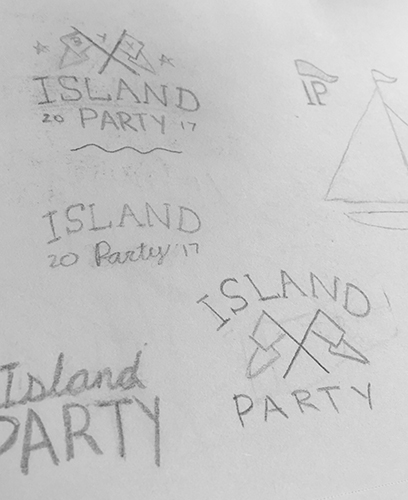 ISLAND
20 PARTY 17
IP
ISLAND
20 Party '17
ISLAND
PARTY
Island
PARTY